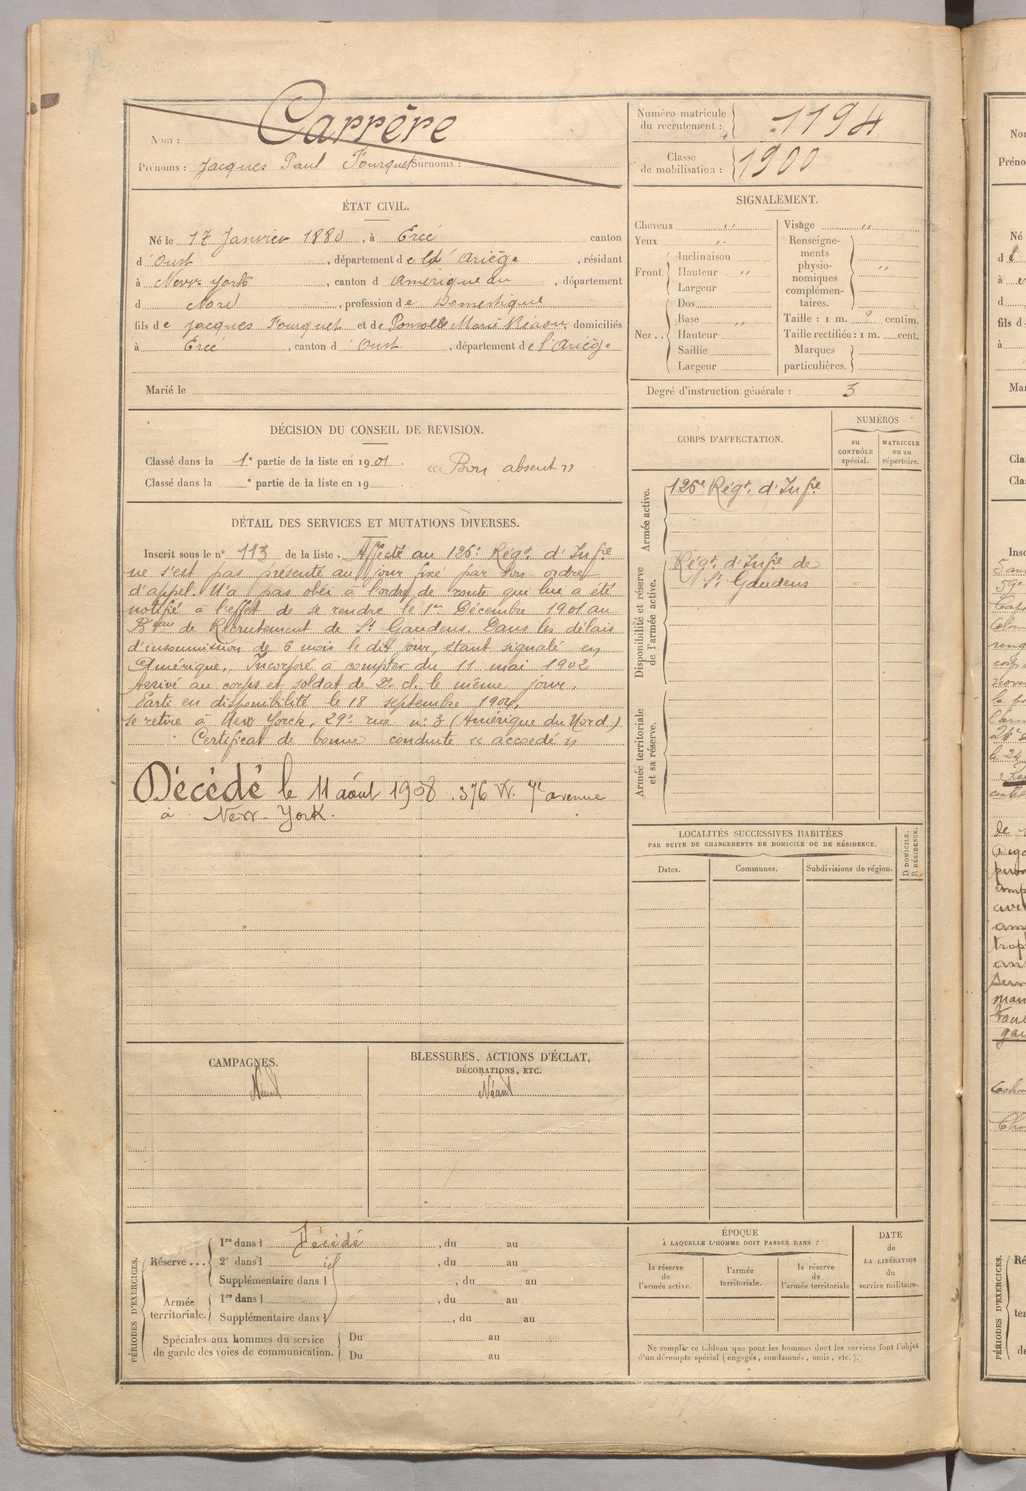 Nom : Carrère
Prénoms : Jacques Paul Fourquet Surnoms :
Numéro matricule du recrutement : 1194
Classe de mobilisation : 1900
ÉTAT CIVIL.
Né le 17 Janvier 1880, à Ercé canton
d'Oust, département de l'Ariège, résidant
à New-York, canton d Amérique du, département
d Nord, profession de Domestique
fils de Jacques Fourquet et de Marie, domiciliés
à Ercé, canton d'Oust, département de l'Ariège
Marié le
SIGNALEMENT.
Cheveux "
Yeux "
Front Inclinaison
Hauteur "
Largeur
Nez Dos
Base "
Hauteur
Saillie
Largeur
Visage "
Renseignements physionomiques complémentaires. "
Taille : 1 m. centim.
Taille rectifiée : 1 m. cent.
Marques particulières.
Degré d'instruction générale : 3
DÉCISION DU CONSEIL DE REVISION.
Classé dans la 1e partie de la liste en 1901. « Bon absent »
Classé dans la e partie de la liste en 19
CORPS D'AFFECTATION.
NUMÉROS
au CONTRÔLE spécial.
MATRICULE ou au répertoire.
Armée active.
126e Régt. d'Infie
Disponibilité et réserve de l'armée active.
Régt. d'Infie de
St. Gaudens
Armée territoriale et sa réserve.
DÉTAIL DES SERVICES ET MUTATIONS DIVERSES.
Inscrit sous le n° 113 de la liste. Affecté au 126e Régt. d'Infie
ne s'est pas présenté au jour fixé par son ordre
d'appel. N'a pas obéi à l'ordre de route qui lui a été
notifié à l'effet de se rendre le 1er Décembre 1901 au
Beau de Recrutement de St. Gaudens. Dans les délais
d'insoumission de 6 mois le dit jour, étant signalé en
Amérique. Incorporé à compter du 11 mai 1902
Arrivé au corps et soldat de 2e cl. le même jour.
Parte en disponibilité le 18 septembre 1904.
Se retire à New Yorck, 29e rue n: 3 (Amérique du Nord)
Certificat de bonne conduite « accordé »
Décédé le 11 août 1908. 376 W. 7e avenue
à New-York.
LOCALITÉS SUCCESSIVES HABITÉES
PAR SUITE DE CHANGEMENTS DE DOMICILE OU DE RÉSIDENCE.
Dates. Communes. Subdivisions de région. D. DOMICILE. R. RÉSIDENCE.
CAMPAGNES.
Néant
BLESSURES, ACTIONS D'ÉCLAT,
DÉCORATIONS, ETC.
Néant
PÉRIODES D'EXERCICES.
Réserve ... 1re dans l Décédé, du au
2e dans l id, du au
Supplémentaire dans l, du au
Armée territoriale. 1re dans l, du au
Supplémentaire dans l, du au
Spéciales aux hommes du service de garde des voies de communication. Du au
Du au
ÉPOQUE
À LAQUELLE L'HOMME DOIT PASSER DANS :
la réserve de l'armée active.
l'armée territoriale.
la réserve de l'armée territoriale
DATE de LA LIBÉRATION du service militaire.
Ne remplir ce tableau que pour les hommes dont les services font l'objet
d'un décompte spécial (engagés, condamnés, omis, etc.).